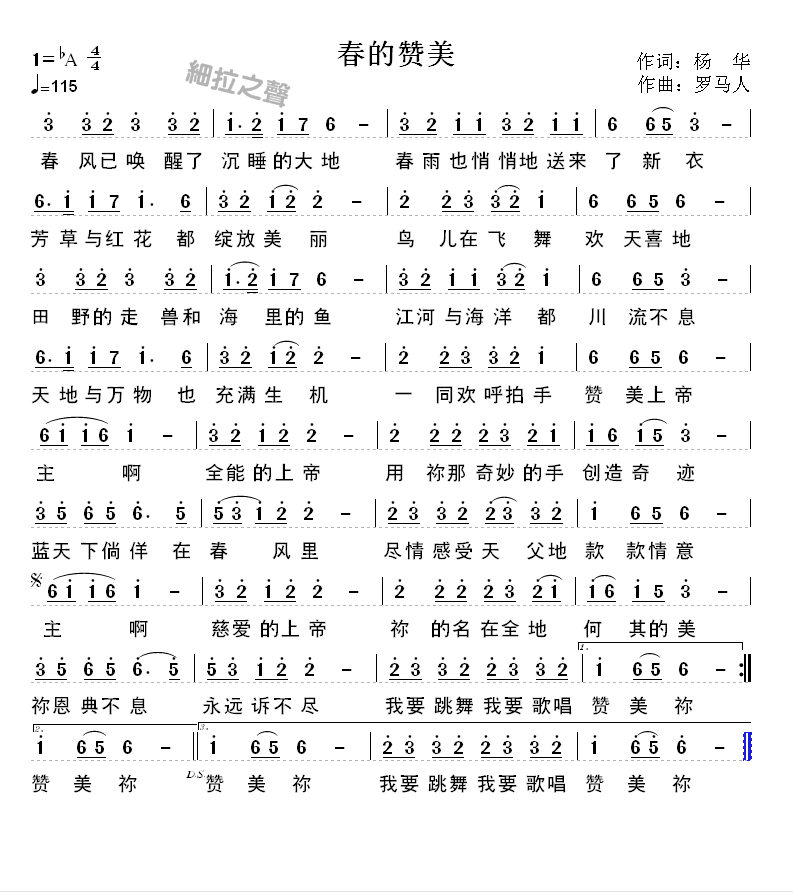 春的赞美
1=♭A 4/4
作词：杨　华
♩=115
細拉之聲
作曲：罗马人
3 3 2 3 3 2 | 1· 2 1 7 6 － | 3 2 1 1 3 2 1 1 | 6 6 5 3 － |
春 风已唤 醒了 沉睡的大地 春雨也悄悄地送来 了 新 衣
6· 1 1 7 1· 6 | 3 2 1 2 2 － | 2 2 3 3 2 1 | 6 6 5 6 － |
芳草与红花 都 绽放美 丽 鸟 儿在飞 舞 欢 天喜地
3 3 2 3 3 2 | 1· 2 1 7 6 － | 3 2 1 1 3 2 1 | 6 6 5 3 － |
田 野的走 兽和 海 里的鱼 江河与海洋 都 川 流不息
6· 1 1 7 1· 6 | 3 2 1 2 2 － | 2 2 3 3 2 1 | 6 6 5 6 － |
天地与万物 也 充满生 机 一 同欢呼拍手 赞 美上帝
6 1 1 6 1 － | 3 2 1 2 2 － | 2 2 2 2 3 2 1 | 1 6 1 5 3 － |
主 啊 全能的上帝 用 祢那奇妙的手 创造奇 迹
3 5 6 5 6· 5 | 5 3 1 2 2 － | 2 3 3 2 2 3 3 2 | 1 6 5 6 － |
蓝天下倘佯 在 春 风里 尽情感受天 父地 款 款情意
6 1 1 6 1 － | 3 2 1 2 2 － | 2 2 2 2 3 2 1 | 1 6 1 5 3 － |
主 啊 慈爱的上帝 祢 的名在全地 何 其的美
1.
3 5 6 5 6· 5 | 5 3 1 2 2 － | 2 3 3 2 2 3 3 2 | 1 6 5 6 － :||
祢恩典不息 永远诉不尽 我要跳舞我要歌唱 赞 美 祢
2. 3.
1 6 5 6 － || 1 6 5 6 － | 2 3 3 2 2 3 3 2 | 1 6 5 6 － ||
赞 美 祢 D.S. 赞 美 祢 我要跳舞我要歌唱 赞 美 祢